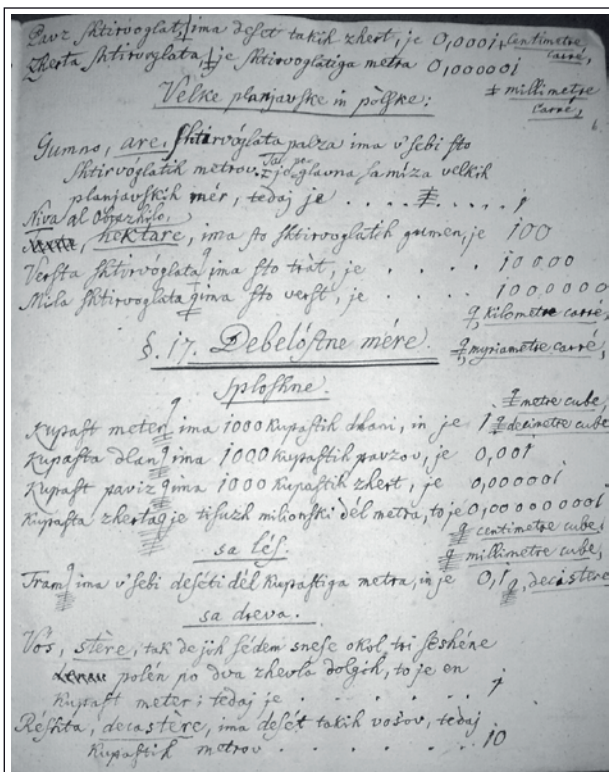 Pavz shtirvoglat, ima deset takih zhert, je 0,0001, centimetre carré,
Zherta shtirvoglata je shtirvoglatiga metra 0,000001
millimetre carré,
Velke planjavske in pólske:
Gumno, are, shtirvóglata palza ima v'sebi sto
shtirvóglatih metrov. Ta je poglavna samiza velkih
planjavskih mér, tedaj je . . . . . . . . 1
Niva al Obrazhilo,
hektare, ima sto shtirvoglatih gumen, je 100
Versta shtirvóglata ima sto trat, je . . . . 10000
Mila shtirvoglata ima sto verst, je . . . . 1000000
kilometre carré,
§. 17. Debelóstne mére. myriametre carré,
Sploshne.
metre cube,
Kupast meter ima 1000 kupastih dlani, in je 1 decimetre cube
Kupasta dlan ima 1000 kupastih pavzov, je 0,001
Kupast paviz ima 1000 kupastih zhert, je 0,000001
Kupasta zherta je tisuzh milionski dél metra, to je 0,000000001
centimetre cube,
sa lés. millimetre cube,
Tram ima v'sebi deséti dél kupastiga metra, in je 0,1 decistere
sa dreva.
Vós, stère, tak de jih sédem snese okol tri seshéne
polén po dva zhevla dolgih, to je en
kupast meter; tedaj je . . . . . . . . 1
Reshta, decastère, ima desét takih vosov, tedaj
kupastih metrov . . . . . . . . 10